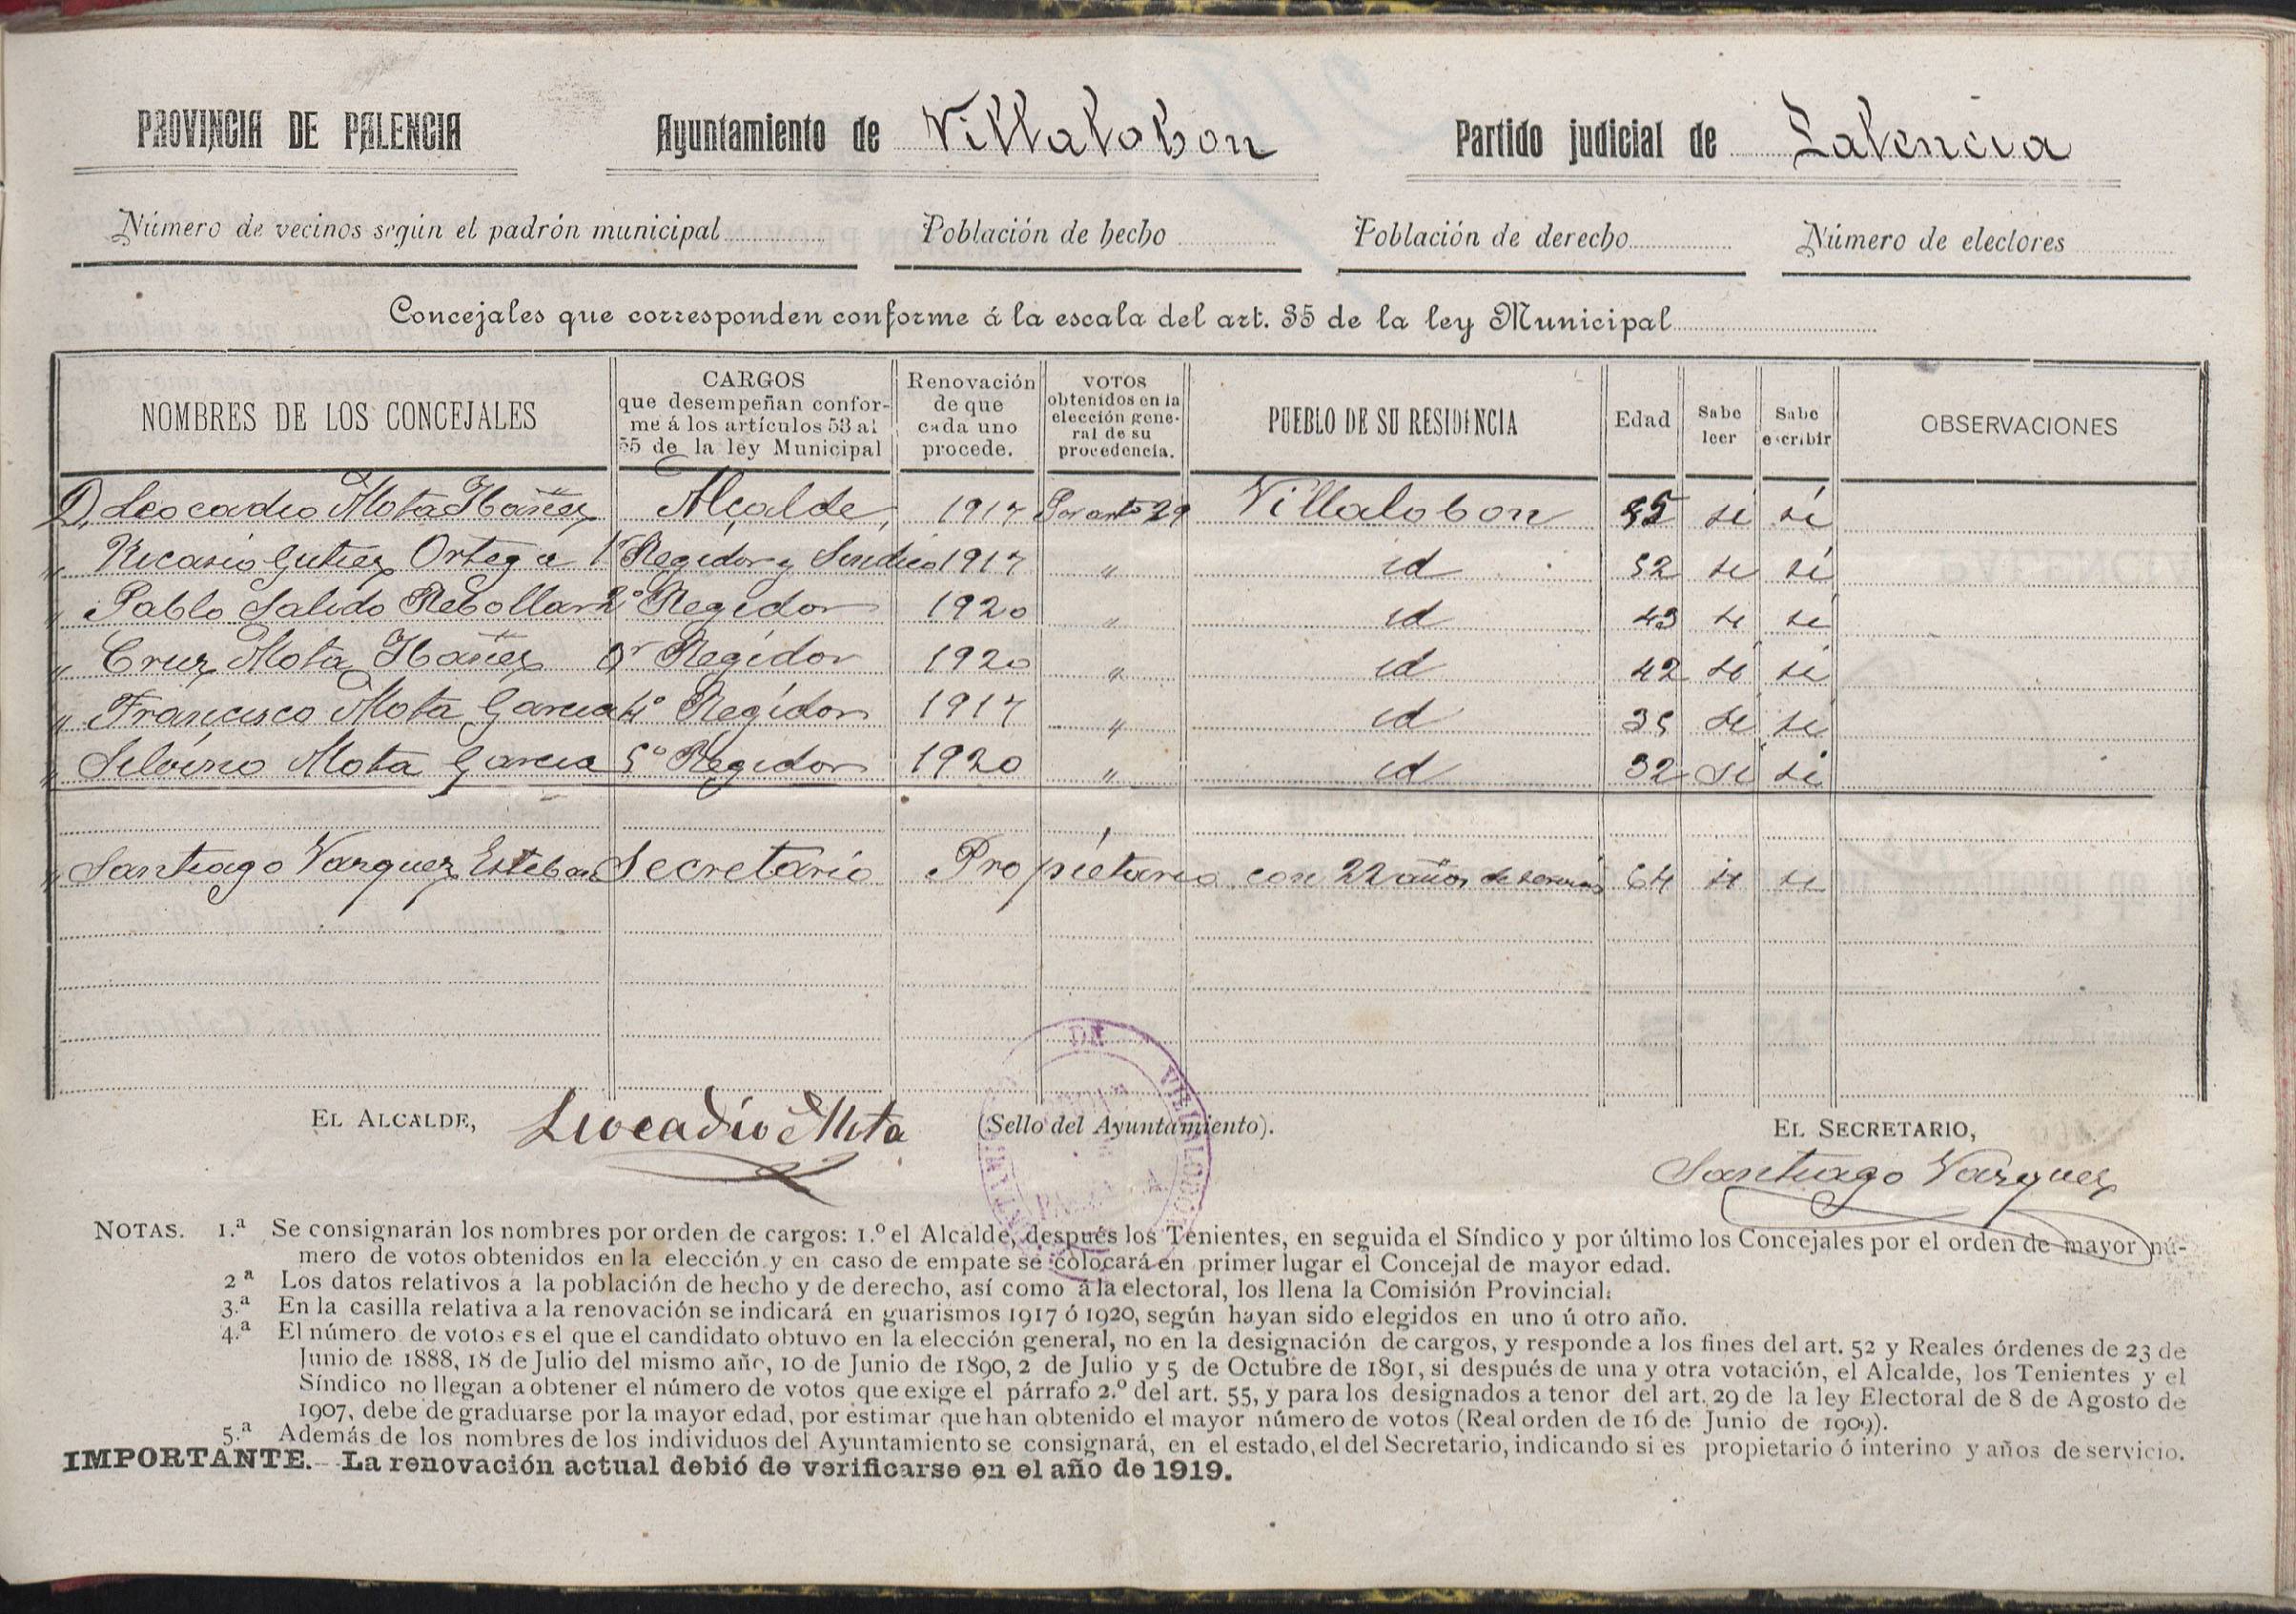 PROVINCIA DE PALENCIA Ayuntamiento de Villalobon Partido judicial de Palencia
Número de vecinos según el padrón municipal Población de hecho Población de derecho Número de electores
Concejales que corresponden conforme á la escala del art. 35 de la ley Municipal
NOMBRES DE LOS CONCEJALES CARGOS que desempeñan conforme á los artículos 53 al 55 de la ley Municipal Renovación de que cada uno procede. VOTOS obtenidos en la elección general de su procedencia. PUEBLO DE SU RESIDENCIA Edad Sabe leer Sabe escribir OBSERVACIONES
D. Leocadio Mota Ibañez Alcalde 1917 Por arto 29 Villalobon 55 si si
" Nicasio Gutiez Ortega 1r Regidor y Sindico 1917 " id 52 si si
" Pablo Salido Rebollar 2º Regidor 1920 " id 43 si si
" Cruz Mota Ibañez 3r Regidor 1920 " id 42 si si
" Francisco Mota Garcia 4º Regidor 1917 " id 35 si si
" Silvino Mota Garcia 5º Regidor 1920 " id 32 si si
" Santiago Vazquez Esteban Secretario Propietario con 22 años de servicio 64 si si
EL ALCALDE, Leocadio Mota (Sello del Ayuntamiento). EL SECRETARIO,
Santiago Vazquez
NOTAS. 1.ª Se consignarán los nombres por orden de cargos: 1.º el Alcalde, después los Tenientes, en seguida el Síndico y por último los Concejales por el orden de mayor nú-
mero de votos obtenidos en la elección y en caso de empate se colocará en primer lugar el Concejal de mayor edad.
2ª Los datos relativos a la población de hecho y de derecho, así como á la electoral, los llena la Comisión Provincial.
3.ª En la casilla relativa a la renovación se indicará en guarismos 1917 ó 1920, según hayan sido elegidos en uno ú otro año.
4.ª El número de votos es el que el candidato obtuvo en la elección general, no en la designación de cargos, y responde a los fines del art. 52 y Reales órdenes de 23 de
Junio de 1888, 18 de Julio del mismo año, 10 de Junio de 1890, 2 de Julio y 5 de Octubre de 1891, si después de una y otra votación, el Alcalde, los Tenientes y el
Síndico no llegan a obtener el número de votos que exige el párrafo 2.º del art. 55, y para los designados a tenor del art. 29 de la ley Electoral de 8 de Agosto de
1907, debe de graduarse por la mayor edad, por estimar que han obtenido el mayor número de votos (Real orden de 16 de Junio de 1909).
5.ª Además de los nombres de los individuos del Ayuntamiento se consignará, en el estado, el del Secretario, indicando si es propietario ó interino y años de servicio.
IMPORTANTE.--La renovación actual debió de verificarse en el año de 1919.